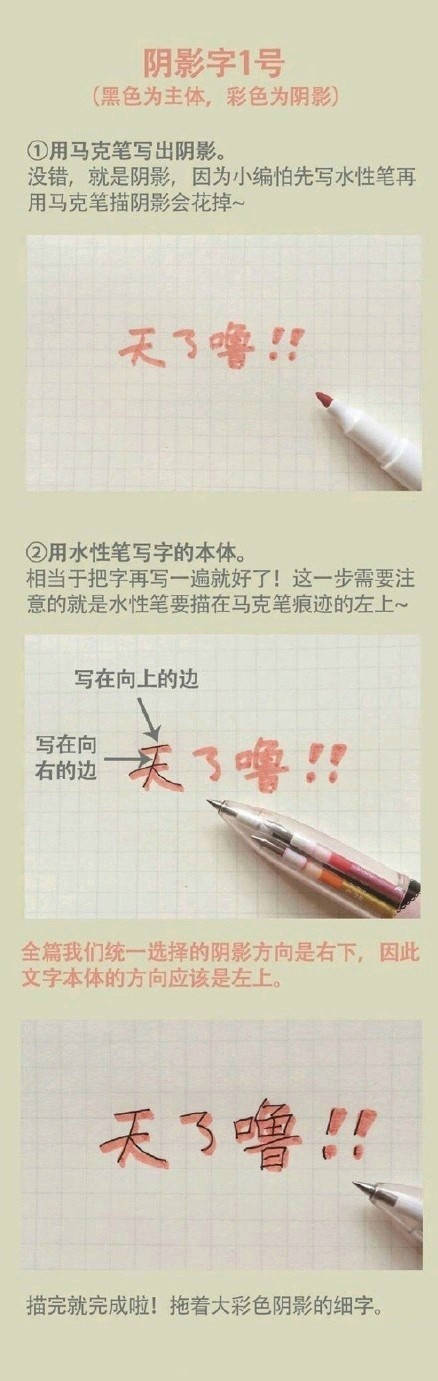 阴影字1号
（黑色为主体，彩色为阴影）
①用马克笔写出阴影。
没错，就是阴影，因为小编怕先写水性笔再
用马克笔描阴影会花掉~
天了噜!!
②用水性笔写字的本体。
相当于把字再写一遍就好了！这一步需要注
意的就是水性笔要描在马克笔痕迹的左上~
写在向上的边
写在向
右的边
天了噜!!
全篇我们统一选择的阴影方向是右下，因此
文字本体的方向应该是左上。
天了噜!!
描完就完成啦！拖着大彩色阴影的细字。